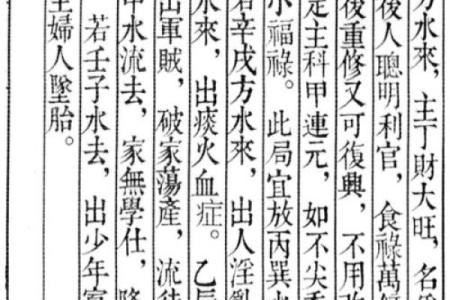 方水來，主丁財大旺，名
後人聰明利官，食祿萬
後重修又可復興，不用
定主科甲連元，如不尖
小福祿。此局宜放丙巽水
若辛戌方水來，出人淫亂
水來，出痰火血症。乙辰
出軍賊，破家蕩產，流徒
申水流去，家無學仕，
若壬子水去，出少年
主婦人墜胎。